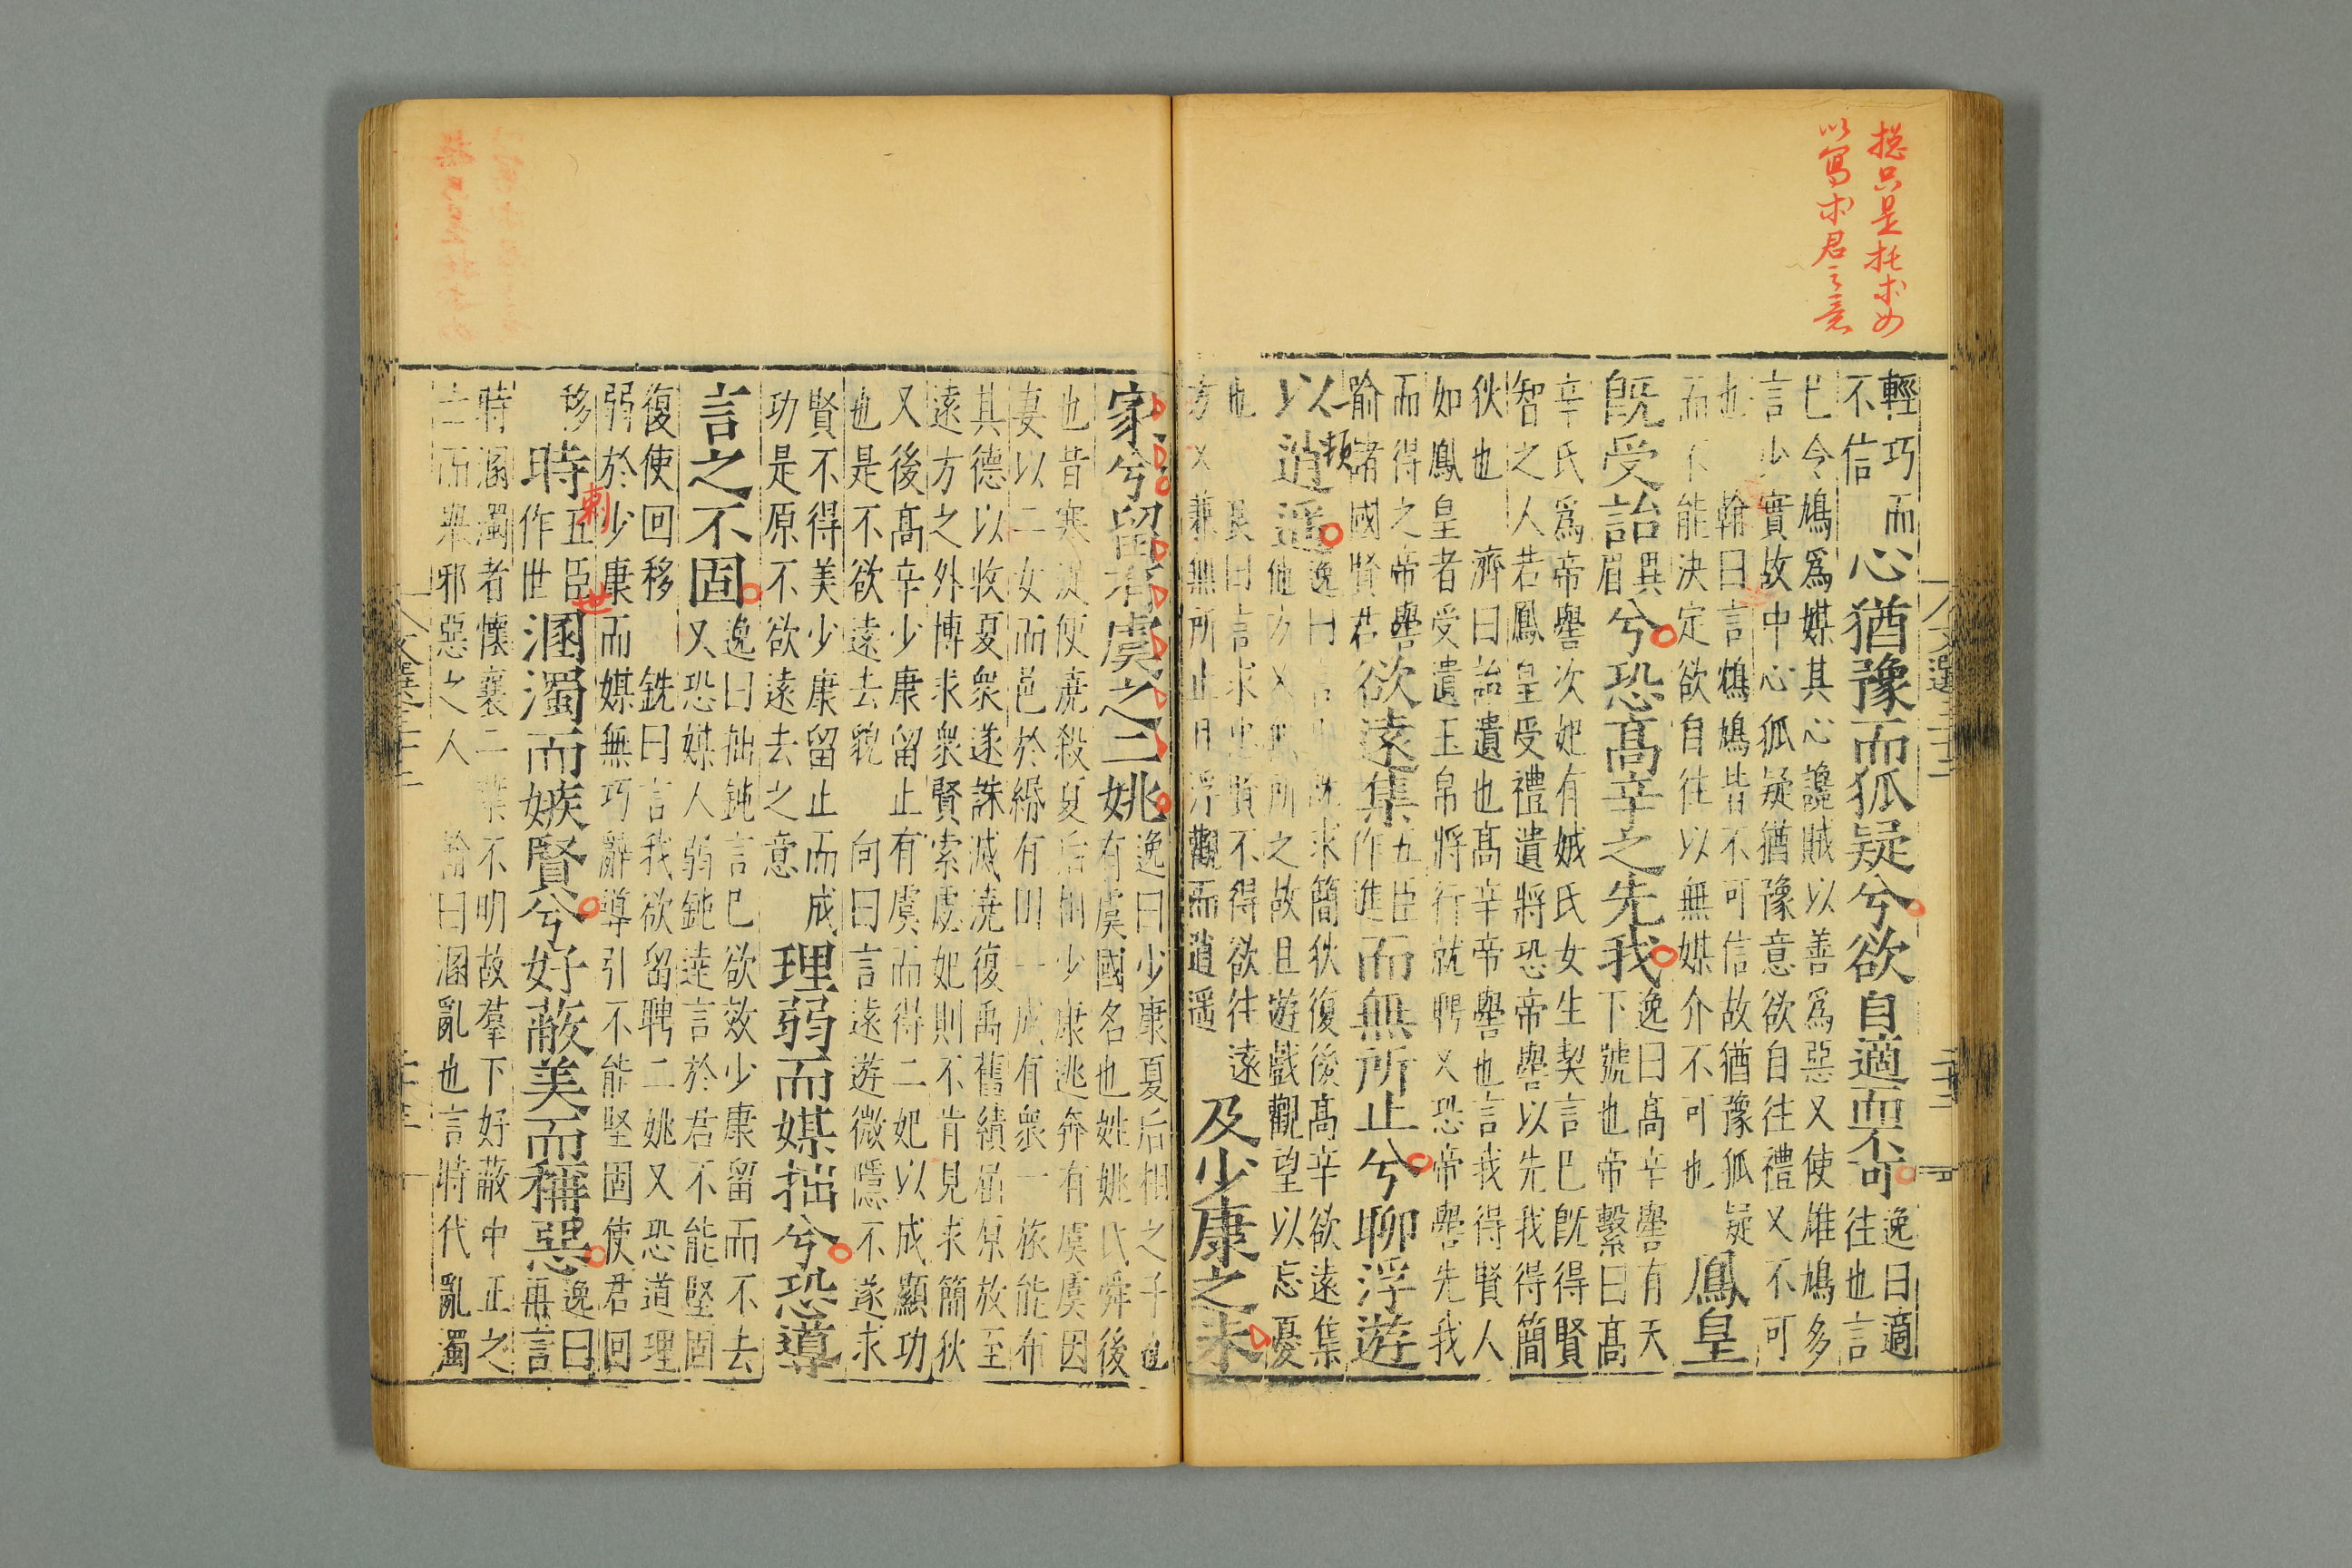 捴只是托求女
以寫求君之意
輕巧而
不信
心猶豫而狐疑兮欲自適而不可
逸曰適
往也言
已令鳩爲媒其心讒賊以善爲惡又使雄鳩多
言少實故中心狐疑猶豫意欲自往禮又不可
也 翰曰言鴆鳩皆不可信故猶豫狐疑
而不能決定欲自往以無媒介不可也
鳳皇
既受詒
異
眉
兮恐高辛之先我
逸曰高辛帝嚳有天
下號也帝繫曰高
辛氏爲帝嚳次妃有娀氏女生契言巳既得賢
智之人若鳳皇受禮遺將恐帝嚳以先我得簡
狄也 濟曰詒遺也高辛帝嚳也言我得賢人
如鳳皇者受遺玉帛將行就聘又恐帝嚳先我
而得之帝嚳
喻諸國賢君
欲遠集
五臣
作進
而無所止兮聊浮遊
以逍遥
逸曰言旣求簡狄復後高辛欲遠集
他方又無所之故且遊戲觀望以忘憂
也 良曰言求忠賢不得欲往遠
方又兼無所止且浮觀而逍遥
及少康之未
家兮留有虞之二姚
逸曰少康夏后相之子也
有虞國名也姓姚氏舜後
也昔寒浞使澆殺夏后相少康逃奔有虞虞因
妻以二女而邑於綸有田一成有衆一旅能布
其德以收夏衆遂誅滅澆復禹舊績屈原放至
遠方之外博求衆賢索虙妃則不肯見求簡狄
又後高辛少康留止有虞而得二妃以成顯功
也是不欲遠去貌 向曰言遠遊微隱不遂求
賢不得美少康留止而成
功是原不欲遠去之意
理弱而媒拙兮恐導
言之不固
逸曰拙鈍言巳欲效少康留而不去
又恐媒人弱鈍達言於君不能堅固
復使回移 銑曰言我欲留聘二姚又恐道理
弱於少康而媒無巧辭導引不能堅固使君回
移
時
五臣
作世
溷濁而嫉賢兮好蔽美而稱惡
逸曰
再言
時溷濁者懷襄二世不明故羣下好蔽中正之
士而舉邪惡之人 翰曰溷亂也言時代亂濁